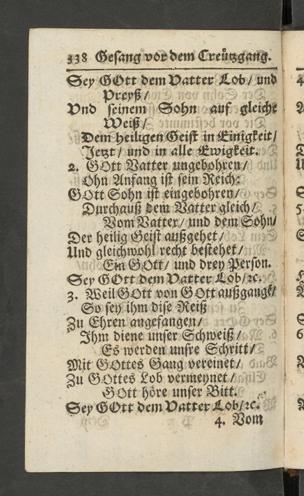 338 Gesang vor dem Creützgang.
Sey GOtt dem Vatter Lob / und
Preyß /
Vnd seinem Sohn auf gleiche
Weiß /
Dem heiligen Geist in Einigkeit /
Jetzt / und in alle Ewigkeit.
2. GOtt Vatter ungebohren /
Ohn Anfang ist sein Reich:
GOtt Sohn ist eingebohren /
Durchauß dem Vatter gleich /
Vom Vatter / und dem Sohn /
Der heilig Geist außgehet /
Und gleichwohl recht bestehet /
Ein GOtt / und drey Person.
Sey GOtt dem Vatter Lob / ꝛc.
3. Weil GOtt von GOtt außgangẽ /
So sey ihm dise Reiß
Zu Ehren angefangen /
Ihm diene unser Schweiß /
Es werden unsre Schritt /
Mit GOttes Gang vereinet /
Zu GOttes Lob vermeynet /
GOtt höre unser Bitt.
Sey GOtt dem Vatter Lob / ꝛc.
4. Vom